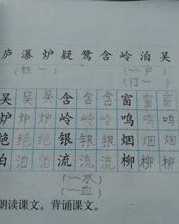 庐 瀑 炉 疑 鹭 含 岭 泊 吴
吴 吴 吴 含 含 含 窗 窗 窗
炉 炉 炉 岭 岭 岭 鸣 鸣 鸣
绝 绝 绝 银 银 银 烟 烟 烟
泊 泊 泊 流 流 流 柳 柳 柳
(一水)
(一血)
朗读课文。背诵课文。